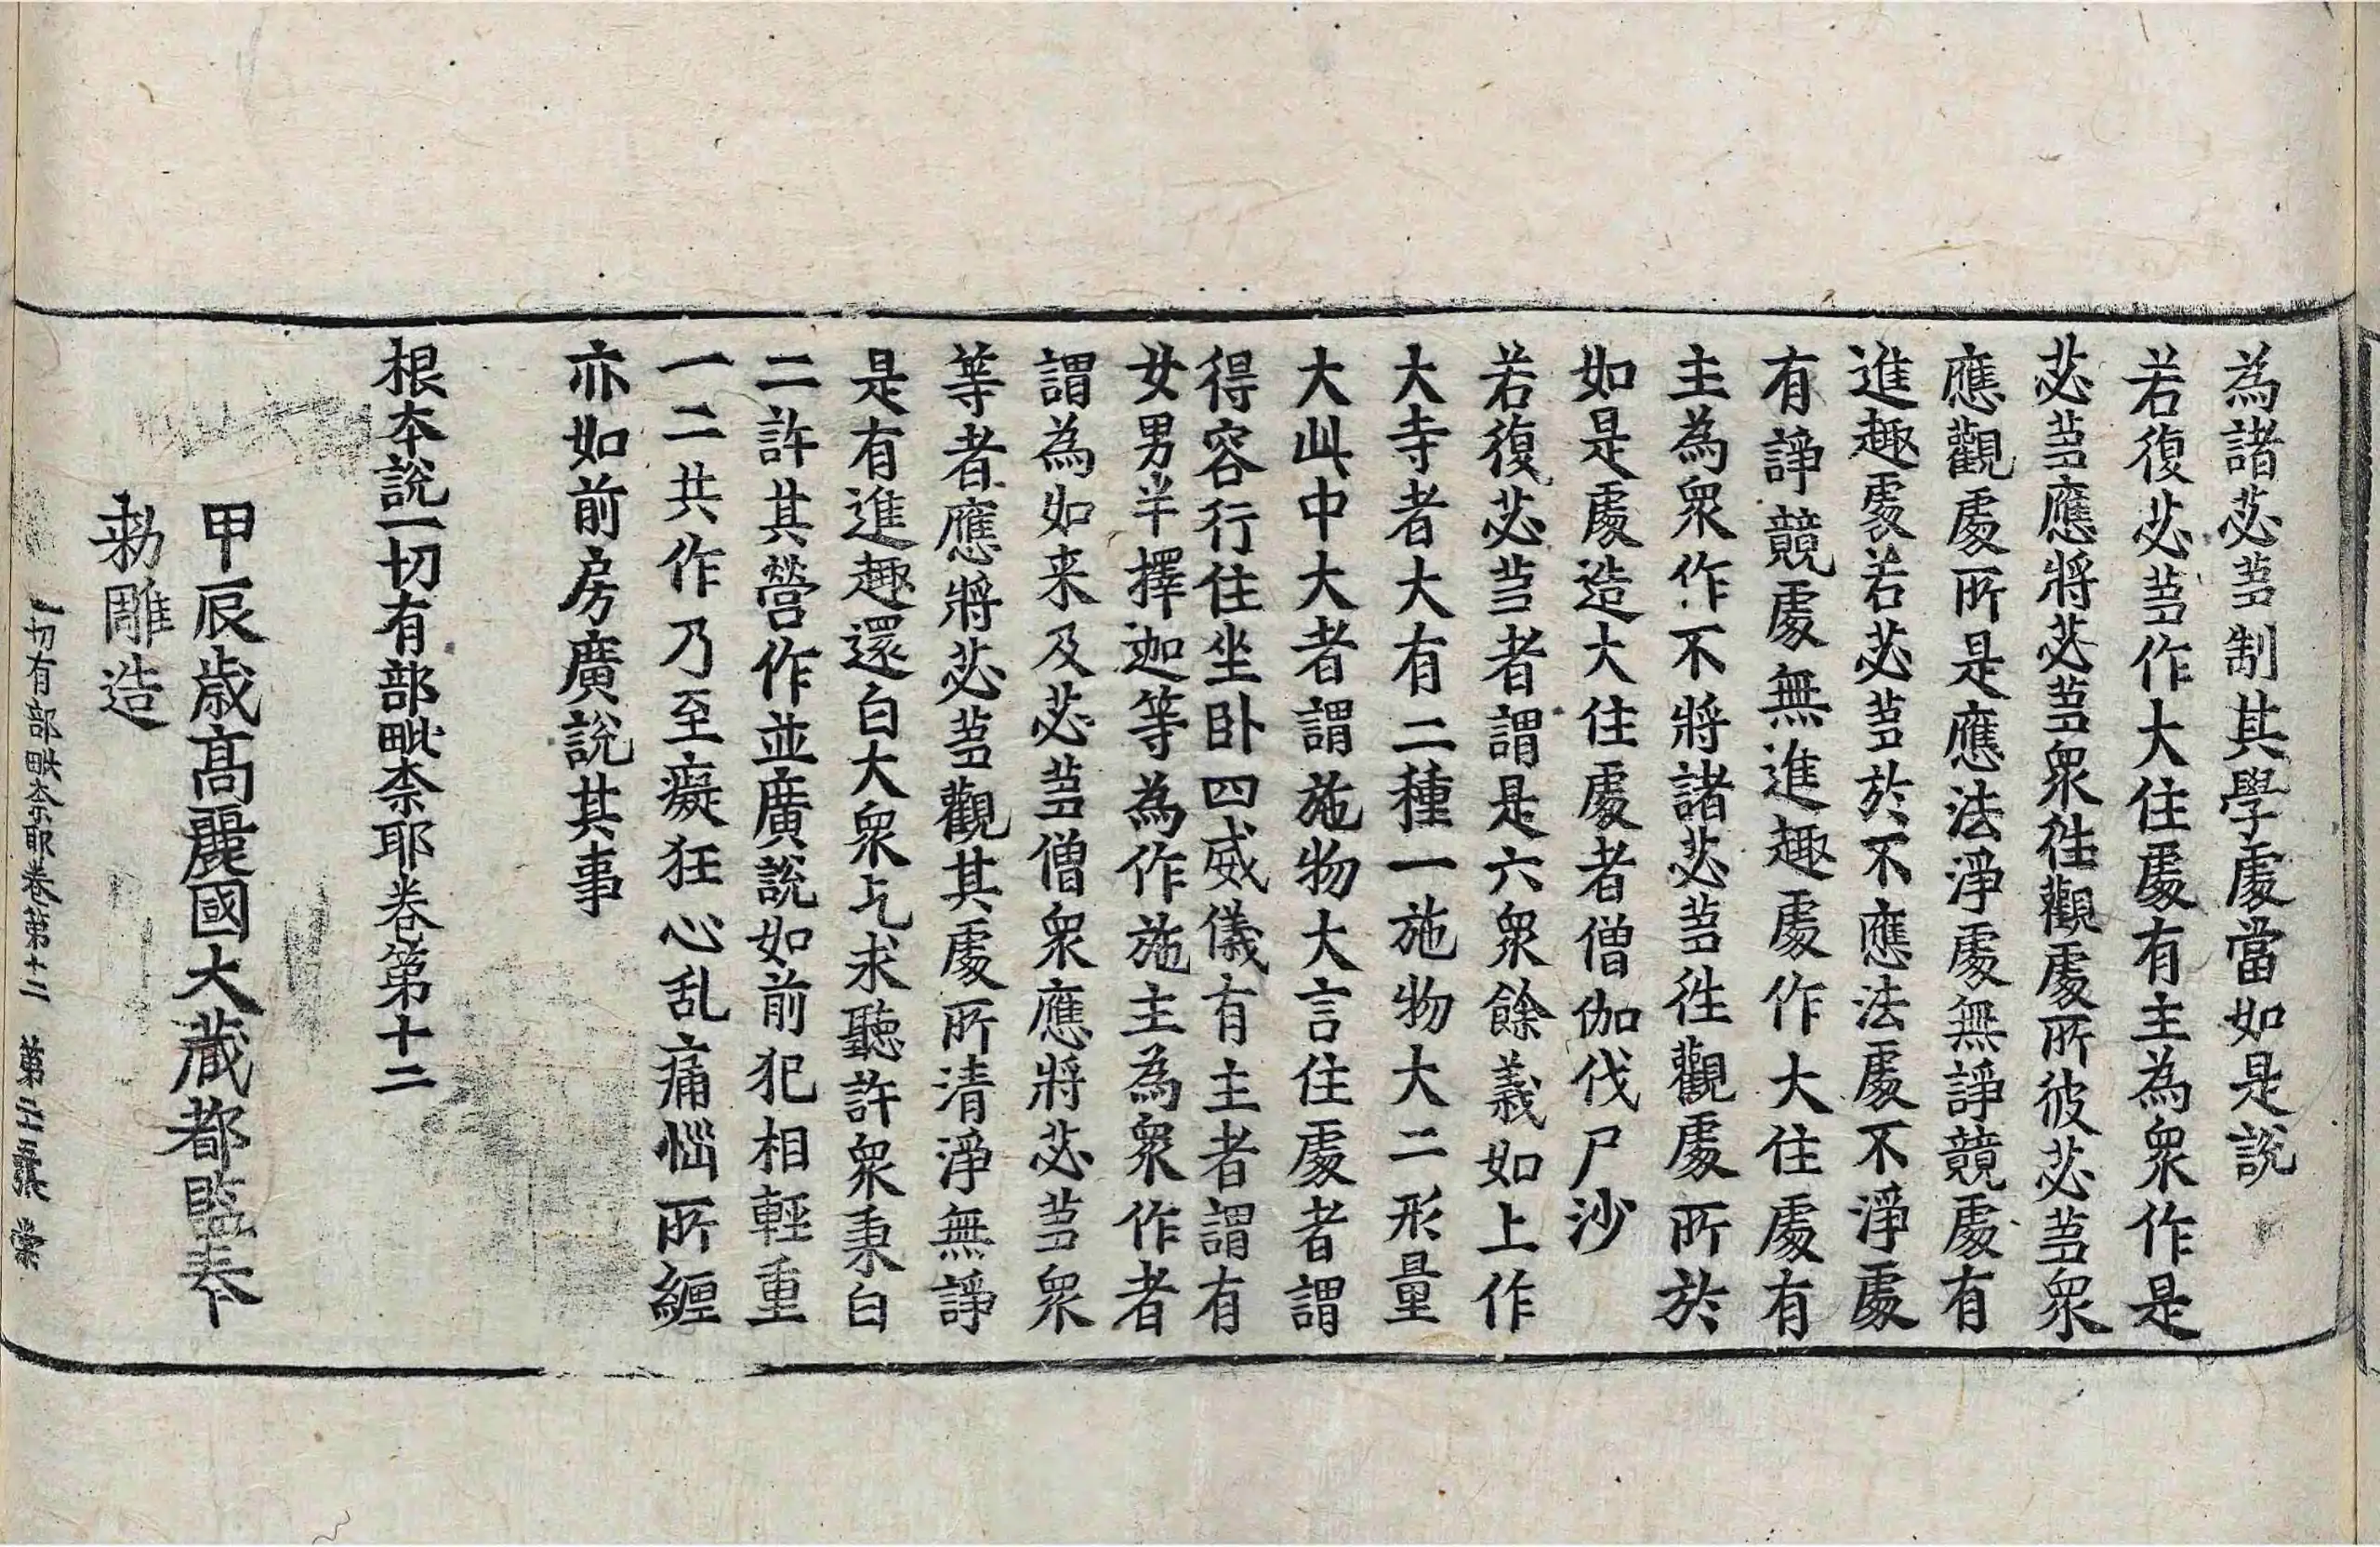 為諸苾芻制其學處當如是說
若復苾芻作大住處有主為衆作是
苾芻應將苾芻衆往觀處所彼苾芻衆
應觀處所是應法淨處無諍競處有
進趣處若苾芻於不應法處不淨處
有諍競處無進趣處作大住處有
主為衆作不將諸苾芻往觀處所於
如是處造大住處者僧伽伐尸沙
若復苾芻者謂是六衆餘義如上作
大寺者大有二種一施物大二形量
大此中大者謂施物大言住處者謂
得容行住坐卧四威儀有主者謂有
女男半擇迦等為作施主為衆作者
謂為如来及苾芻僧衆應將苾芻衆
等者應將苾芻觀其處所清淨無諍
是有進趣還白大衆乞求聽許衆秉白
二許其營作並廣說如前犯相輕重
一二共作乃至癡狂心乱痛惱所纏
亦如前房廣說其事
根本說一切有部毗柰耶卷第十二
甲辰歳高麗國大藏都監奉
勑雕造
一切有部毗柰耶卷第十二　第二十二張　棠